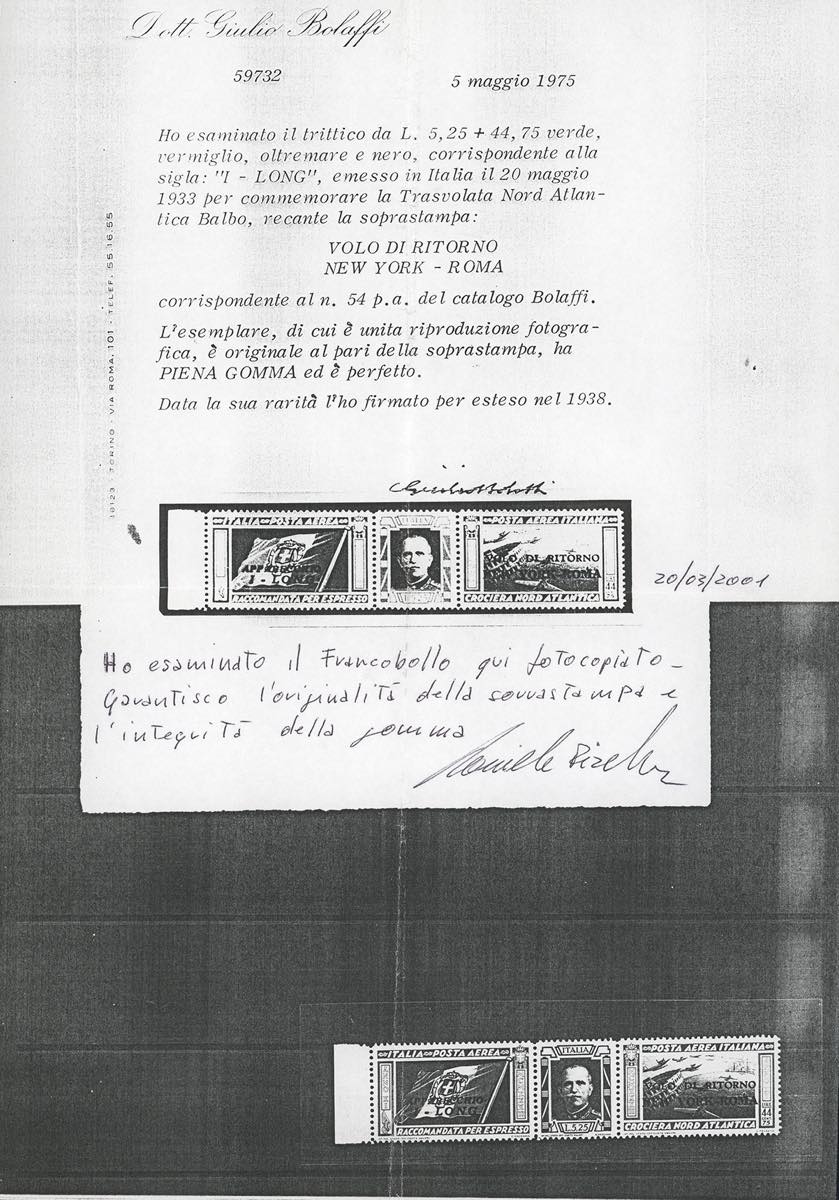 Dott. Giulio Bolaffi
59732
5 maggio 1975
Ho esaminato il trittico da L. 5,25 + 44,75 verde,
vermiglio, oltremare e nero, corrispondente alla
sigla: "I - LONG", emesso in Italia il 20 maggio
1933 per commemorare la Trasvolata Nord Atlan-
tica Balbo, recante la soprastampa:
VOLO DI RITORNO
NEW YORK - ROMA
corrispondente al n. 54 p.a. del catalogo Bolaffi.
L'esemplare, di cui è unita riproduzione fotogra-
fica, è originale al pari della soprastampa, ha
PIENA GOMMA ed è perfetto.
Data la sua rarità l'ho firmato per esteso nel 1938.
10123 - TORINO - VIA ROMA, 101 - TELEF. 55.16.55
ITALIA POSTA AEREA
APPARECCHIO
I - LONG
RACCOMANDATA PER ESPRESSO
ITALIA
POSTA AEREA ITALIANA
VOLO DI RITORNO
NEW YORK-ROMA
44
CROCIERA NORD ATLANTICA
20/03/2001
Ho esaminato il Francobollo qui fotocopiato -
Garantisco l'originalità della sovrastampa e
l'integrità della gomma
ITALIA POSTA AEREA
APPARECCHIO
I-LONG
RACCOMANDATA PER ESPRESSO
ITALIA
L.5.25
POSTA AEREA ITALIANA
VOLO DI RITORNO
NEW YORK-ROMA
LIRE
44
75
CROCIERA NORD ATLANTICA